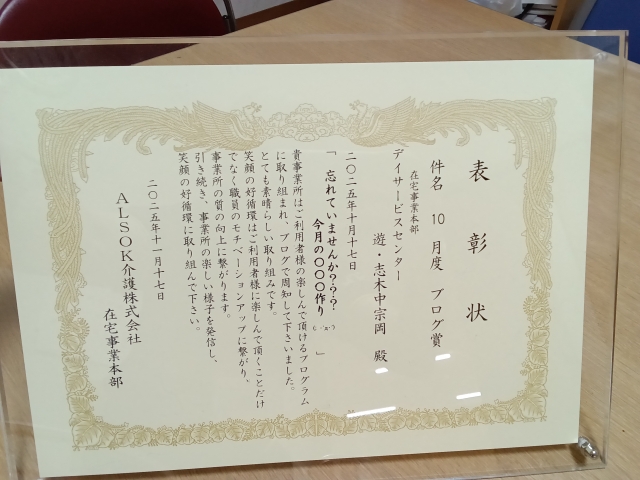 表彰状
件名 10月度 ブログ賞
在宅事業本部
デイサービスセンター
遊・志木中宗岡 殿
二〇二五年十月十七日
「 忘れていませんか？？？
今月の〇〇〇作り 」
貴事業所はご利用者様の楽しんで頂けるプログラム
に取り組まれ、ブログで周知して下さいました。
とても素晴らしい取り組みです。
笑顔の好循環はご利用者様に楽しんで頂くことだけ
でなく職員のモチベーションアップに繋がり、
事業所の質の向上に繋がります。
引き続き、事業所の楽しい様子を発信し、
笑顔の好循環に取り組んで下さい。
二〇二五年十一月十七日
ALSOK介護株式会社
在宅事業本部